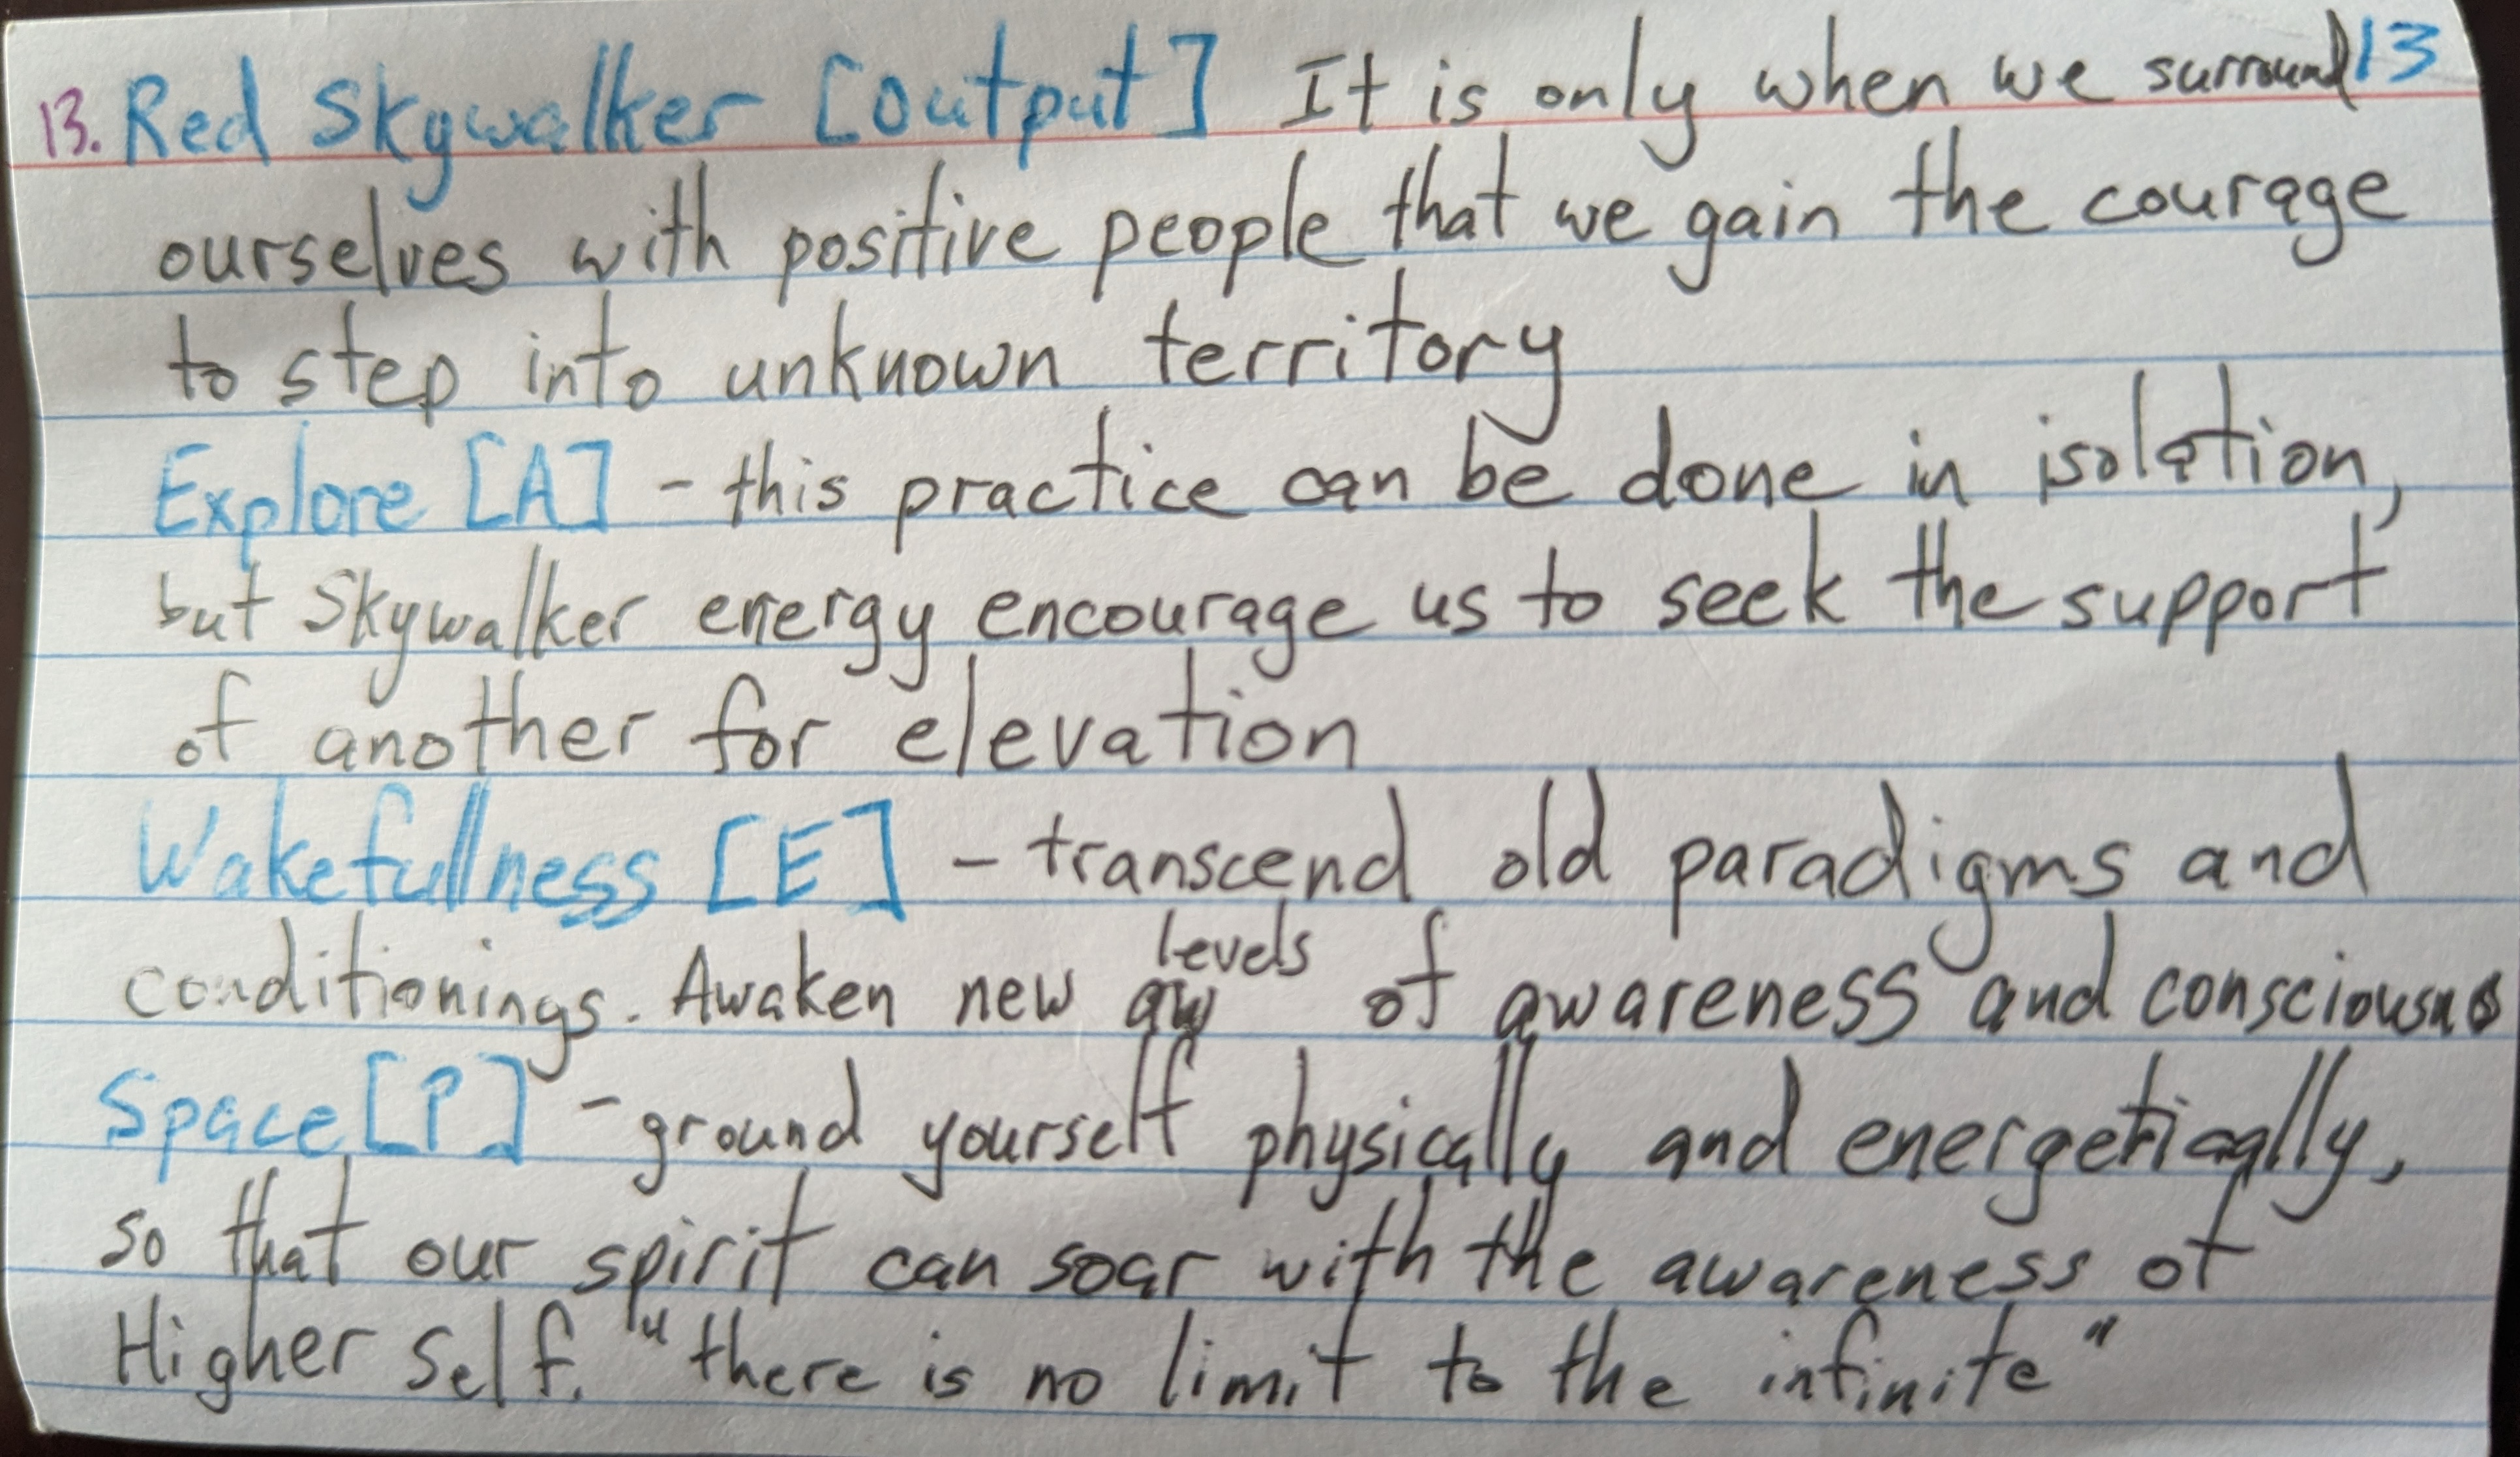 13. Red Skywalker [Output] It is only when we surround 13
ourselves with positive people that we gain the courage
to step into unknown territory
Explore [A] - this practice can be done in isolation,
but Skywalker energy encourage us to seek the support
of another for elevation
Wakefullness [E] - transcend old paradigms and
conditionings. Awaken new levels of awareness and consciousnes
Space [P] - ground yourself physically and energetically,
so that our spirit can soar with the awareness of
Higher Self. "there is no limit to the infinite"